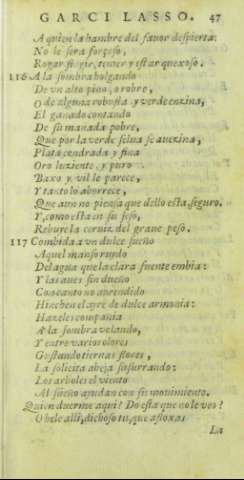 GARCI LASSO. 47
A quien la hambre del fauor despierta.
No le sera forçoso,
Rogar fingir, temer y estar quexoso.
116 A la sombra holgando
De vn alto pino, o robre,
O de alguna robusta y verde enzina,
El ganado contando
De su manada pobre,
Que por la verde selua se auezina,
Plata cendrada y fina
Oro luziente y puro
Baxo y vil le parece,
Y tanto lo aborrece,
Que aun no piensa que dello està seguro.
Y, como està en su seso,
Rehuye la ceruiz del graue peso.
117 Combida a vn dulce sueño
Aquel manso ruydo
Del agua que la clara fuente embia:
Y las aues sin dueño
Con canto no aprendido
Hinchen el ayre de dulce armonia:
Hazeles compañia
A la sombra volando,
Y entre varios olores
Gustando tiernas flores,
La solicita abeja susurrando:
Los arboles el viento
Al sueño ayudan con su mouimiento.
Quien duerme aqui? Do està que no le veo?
O hele alli, dichoso tu, que afloxas
La